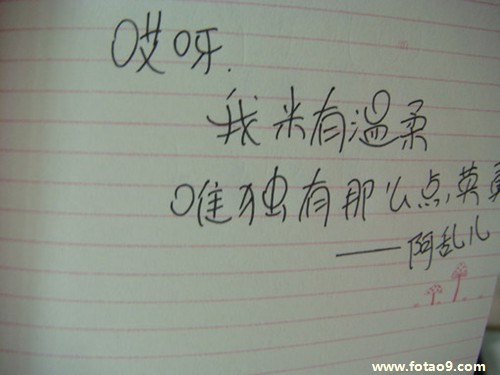 哎呀.
我米有温柔
唯独有那么点英勇
——阿乱儿
www.fotao9.com